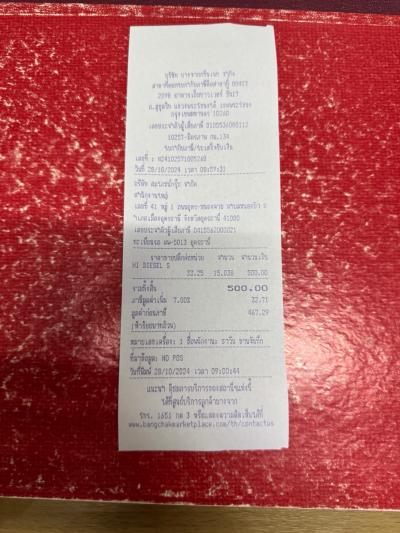 บริษัท บางจากกรีนเนท จำกัด
2098 อาคารเอ็มทาวเวอร์ ชั้น7
ถ.สุขุมวิท แขวงพระโขนงใต้ เขตพระโขนง
กรุงเทพมหานคร 10260
เลขประจำตัวผู้เสียภาษี
ใบกำกับภาษี/ใบเสร็จรับเงิน
เลขที่ :
วันที่ 28/10/2024 เวลา 08:59:31
สำนักงานใหญ่
เลขที่ 41 หมู่ 1
อำเภอเมืองอุดรธานี จังหวัดอุดรธานี 41000
เลขประจำตัวผู้เสียภาษี 0415562000021
ทะเบียนรถ ผพ-5013 อุดรธานี
ราคาขายปลีกต่อหน่วย จำนวน จำนวนเงิน
HI DIESEL S
33.25 15.038 500.00
รวมทั้งสิ้น 500.00
ภาษีมูลค่าเพิ่ม 7.00% 32.71
มูลค่าก่อนภาษี 467.29
(ห้าร้อยบาทถ้วน)
หมายเลขเครื่อง: 1 ชื่อพนักงาน: ธาวัน
ที่มาข้อมูล: NO POS
วันที่พิมพ์ 28/10/2024 เวลา 09:00:44
แนะนำ ติชมการบริการของสถานีแห่งนี้
ได้ที่ศูนย์บริการลูกค้าบางจาก
โทร. 1651 กด 3 หรือแสดงความคิดเห็นได้ที่
www.bangchakmarketplace.com/th/contactus